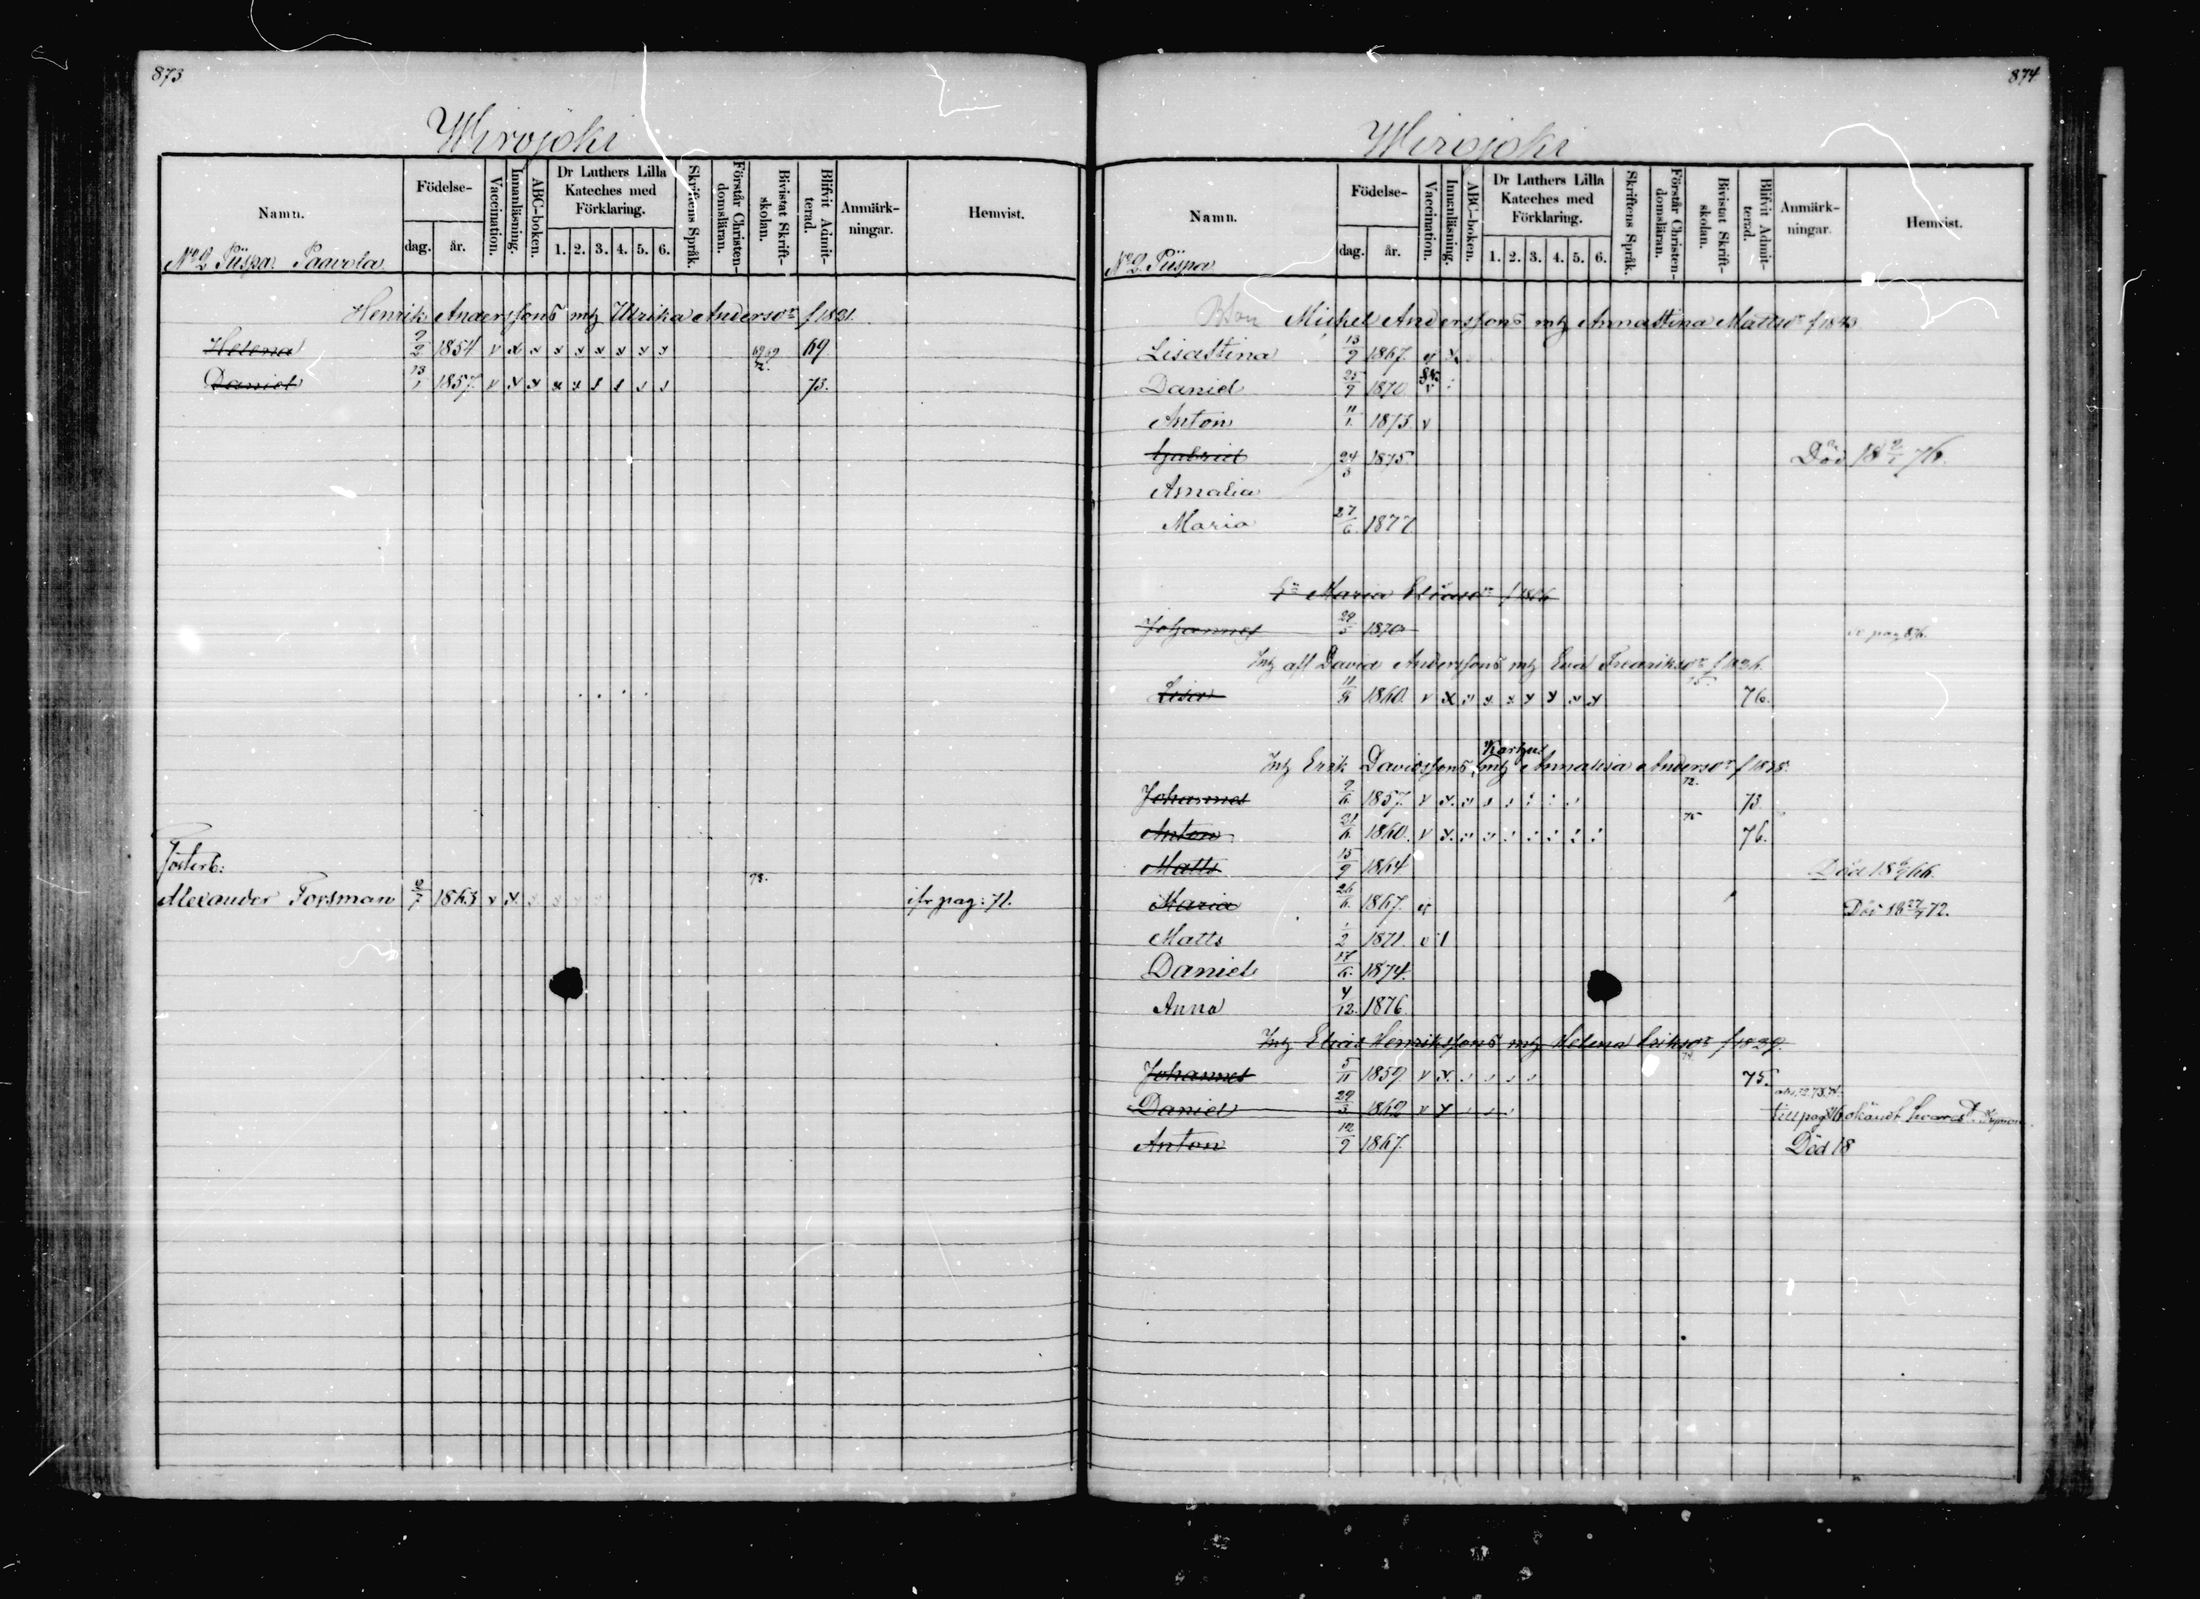 873
Wirojoki
Namn.
Födelse-
dag.
år.
Vaccination.
Innanläsning.
ABC-boken.
Dr Luthers Lilla Kateches med Förklaring.
1. 2. 3. 4. 5. 6.
Skriftens Språk.
Förstår Christendomsläran.
Bivistat Skriftskolan.
Blifvit Admitterad.
Anmärkningar.
Hemvist.
No 2 Piispa Paavola
Henrik Anderssons mh Ulrika Andersdr f 1831.
Helena 9/2 1854 v x x x x x x x x 69 69
Daniel 13/1 1857. v x x x x x x x x 72. 73.
Fosterb:
Alexander Forsman 1863 v x 78. ifr pag: 71.
874
Wirojoki
Namn.
Födelse-
dag.
år.
Vaccination.
Innanläsning.
ABC-boken.
Dr Luthers Lilla Kateches med Förklaring.
1. 2. 3. 4. 5. 6.
Skriftens Språk.
Förstår Christendomsläran.
Bivistat Skriftskolan.
Blifvit Admitterad.
Anmärkningar.
Hemvist.
No 2. Piispa
Michel Anderssons mh Annastina Mattsdr f 1843
Lisastina 13/9 1867.
Daniel 25/9 1870 v
Anton 11/1. 1873. v
Gabriel 24/3 1875. Död
Amalia
Maria 27/6 1877
Maria Eliasdr
Johannes 29/5 1870 pag 876.
Inh afl David Anderssons mh Eva Fredriksdr f 1836.
Lisa 1860. v x 75. 76.
Inh Erik Davidssons mh Annalisa Andersdr
Johannes 9/6 1857. v x 72. 73.
Anton 21/6. 1860. v x 75 76.
Matts 15/9 1864 Död
Maria 26/6. 1867. Död 18 27/4 72.
Matts 1/2 1871.
Daniel 17/6. 1874.
Anna 4/12. 1876.
Inh Elias Henrikssons mh Helena Eriksdr f 1839.
Johannes 5/11 1859 v x 74 75.
Daniel 29/3 1862 v x okändt hvarest
Anton 12/9 1867. Död 18